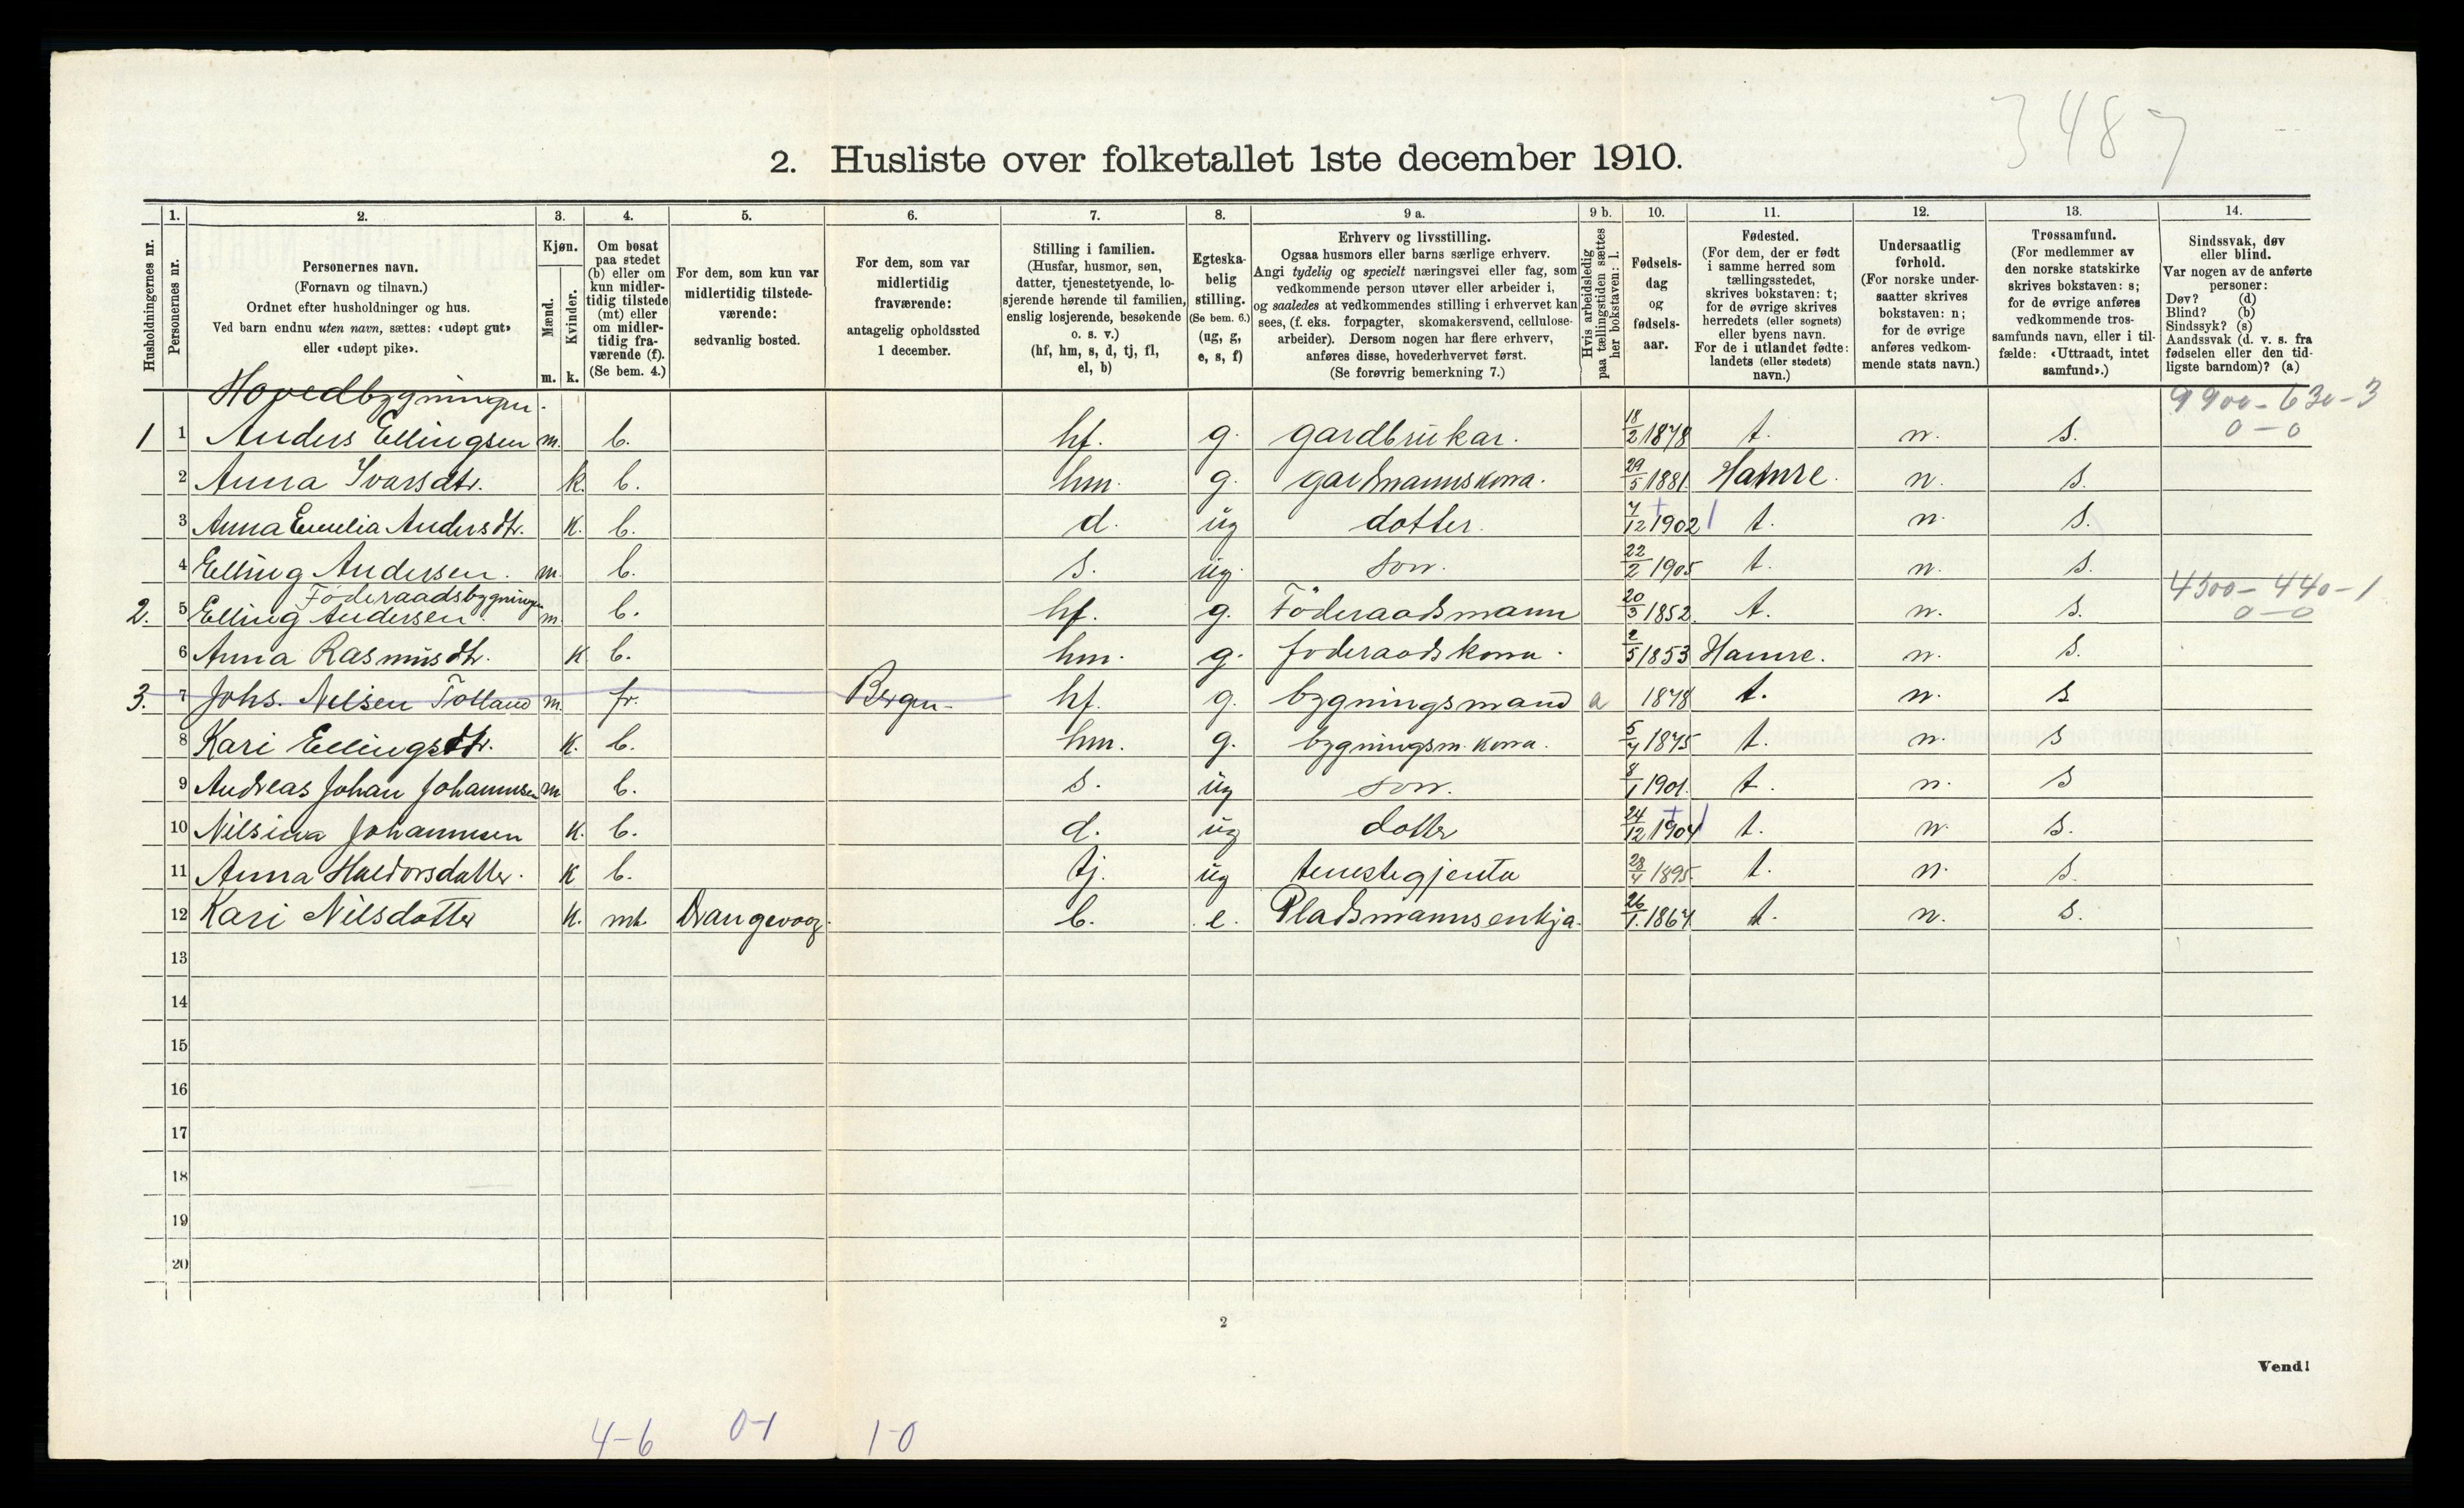 3487
2. Husliste over folketallet 1ste december 1910.
Husholdningernes nr.
1. Personernes nr.
2. Personernes navn. (Fornavn og tilnavn.) Ordnet efter husholdninger og hus. Ved barn endnu uten navn, sættes: «udøpt gut» eller «udøpt pike».
3. Kjøn. Mænd. m. Kvinder. k.
4. Om bosat paa stedet (b) eller om kun midler-tidig tilstede (mt) eller om midler-tidig fra-værende (f). (Se bem. 4.)
5. For dem, som kun var midlertidig tilstede-værende: sedvanlig bosted.
6. For dem, som var midlertidig fraværende: antagelig opholdssted 1 december.
7. Stilling i familien. (Husfar, husmor, søn, datter, tjenestetyende, lo-sjerende hørende til familien, enslig losjerende, besøkende o. s. v.) (hf, hm, s, d, tj, fl, el, b)
8. Egteska-belig stilling. (Se bem. 6.) (ug, g, e, s, f)
9 a. Erhverv og livsstilling. Ogsaa husmors eller barns særlige erhverv. Angi tydelig og specielt næringsvei eller fag, som vedkommende person utøver eller arbeider i, og saaledes at vedkommendes stilling i erhvervet kan sees, (f. eks. forpagter, skomakersvend, cellulose-arbeider). Dersom nogen har flere erhverv, anføres disse, hovederhvervet først. (Se forøvrig bemerkning 7.)
9 b. Hvis arbeidsledig paa tællingstiden sættes her bokstaven: l.
10. Fødsels-dag og fødsels-aar.
11. Fødested. (For dem, der er født i samme herred som tællingsstedet, skrives bokstaven: t; for de øvrige skrives herredets (eller sognets) eller byens navn. For de i utlandet fødte: landets (eller stedets) navn.)
12. Undersaatlig forhold. (For norske under-saatter skrives bokstaven: n; for de øvrige anføres vedkom-mende stats navn.)
13. Trossamfund. (For medlemmer av den norske statskirke skrives bokstaven: s; for de øvrige anføres vedkommende tros-samfunds navn, eller i til-fælde: «Uttraadt, intet samfund».)
14. Sindssvak, døv eller blind. Var nogen av de anførte personer: Døv? (d) Blind? (b) Sindssyk? (s) Aandssvak (d. v. s. fra fødselen eller den tid-ligste barndom)? (a)
Hovedbygningen. 9900-630-3
1 1 Anders Ellingsen m. b. hf. g. gardbrukar. 18/2 1878 t. n. s. 0-0
2 Anna Ivarsdtr. k. b. hm. g. gardmannskona. 29/5 1881 Hamre. n. s.
3 Anna Emelia Andersdtr. k. b. d. ug dotter. 7/12 1902 t. n. s.
4 Elling Andersen. m. b. s. ug. son. 22/2 1905 t. n. s.
Föderaadsbygningen 4300-440-1
2. 5 Elling Andersen m. b. hf. g. Föderaadsmann 20/3 1852. t. n. s. 0-0
6 Anna Rasmusdtr. k b. hm. g. foderaadskona. 2/5 1853 Hamre. n. s.
3. 7 Johs. Nilsen Totland m. fr. Bergen- hf. g. bygningsmand a 1878 t. n. s
8 Kari Ellingsdtr. k. b. hm. g. bygningsm. kona. 5/4 1875 t. n. s
9 Andreas Johan Johannesen m b. s. ug son. 8/1 1901. t. n. s
10 Nilsina Johannesen k. b. d. ug dotter 24/12 1904 t. n. s.
11 Anna Haldorsdatter. k b. tj. ug tenestegjenta 28/4 1895. t. n. s.
12 Kari Nilsdotter k. mt. Drangevaag. b. e. Pladsmannsenkja. 26/1. 1867 t. n. s.
13
14
15
16
17
18
19
20
2
Vend!
4-6 0-1 1-0